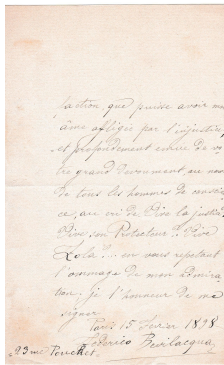 faction, que puisse avoir mon
âme affligée par l'injustice,
et profondement emue de vo
tre grand devouement au nom
de tous les hommes de conscien
ce, au cri de Vive la justice
Vive son Protecteur! Vive
Zola"... en vous repetant
l'ommage de mon admira
tion; je l'honneur de me
signer
Paris 15 fevrier 1898
Federico Bevilacqua
93 rue Pouchet